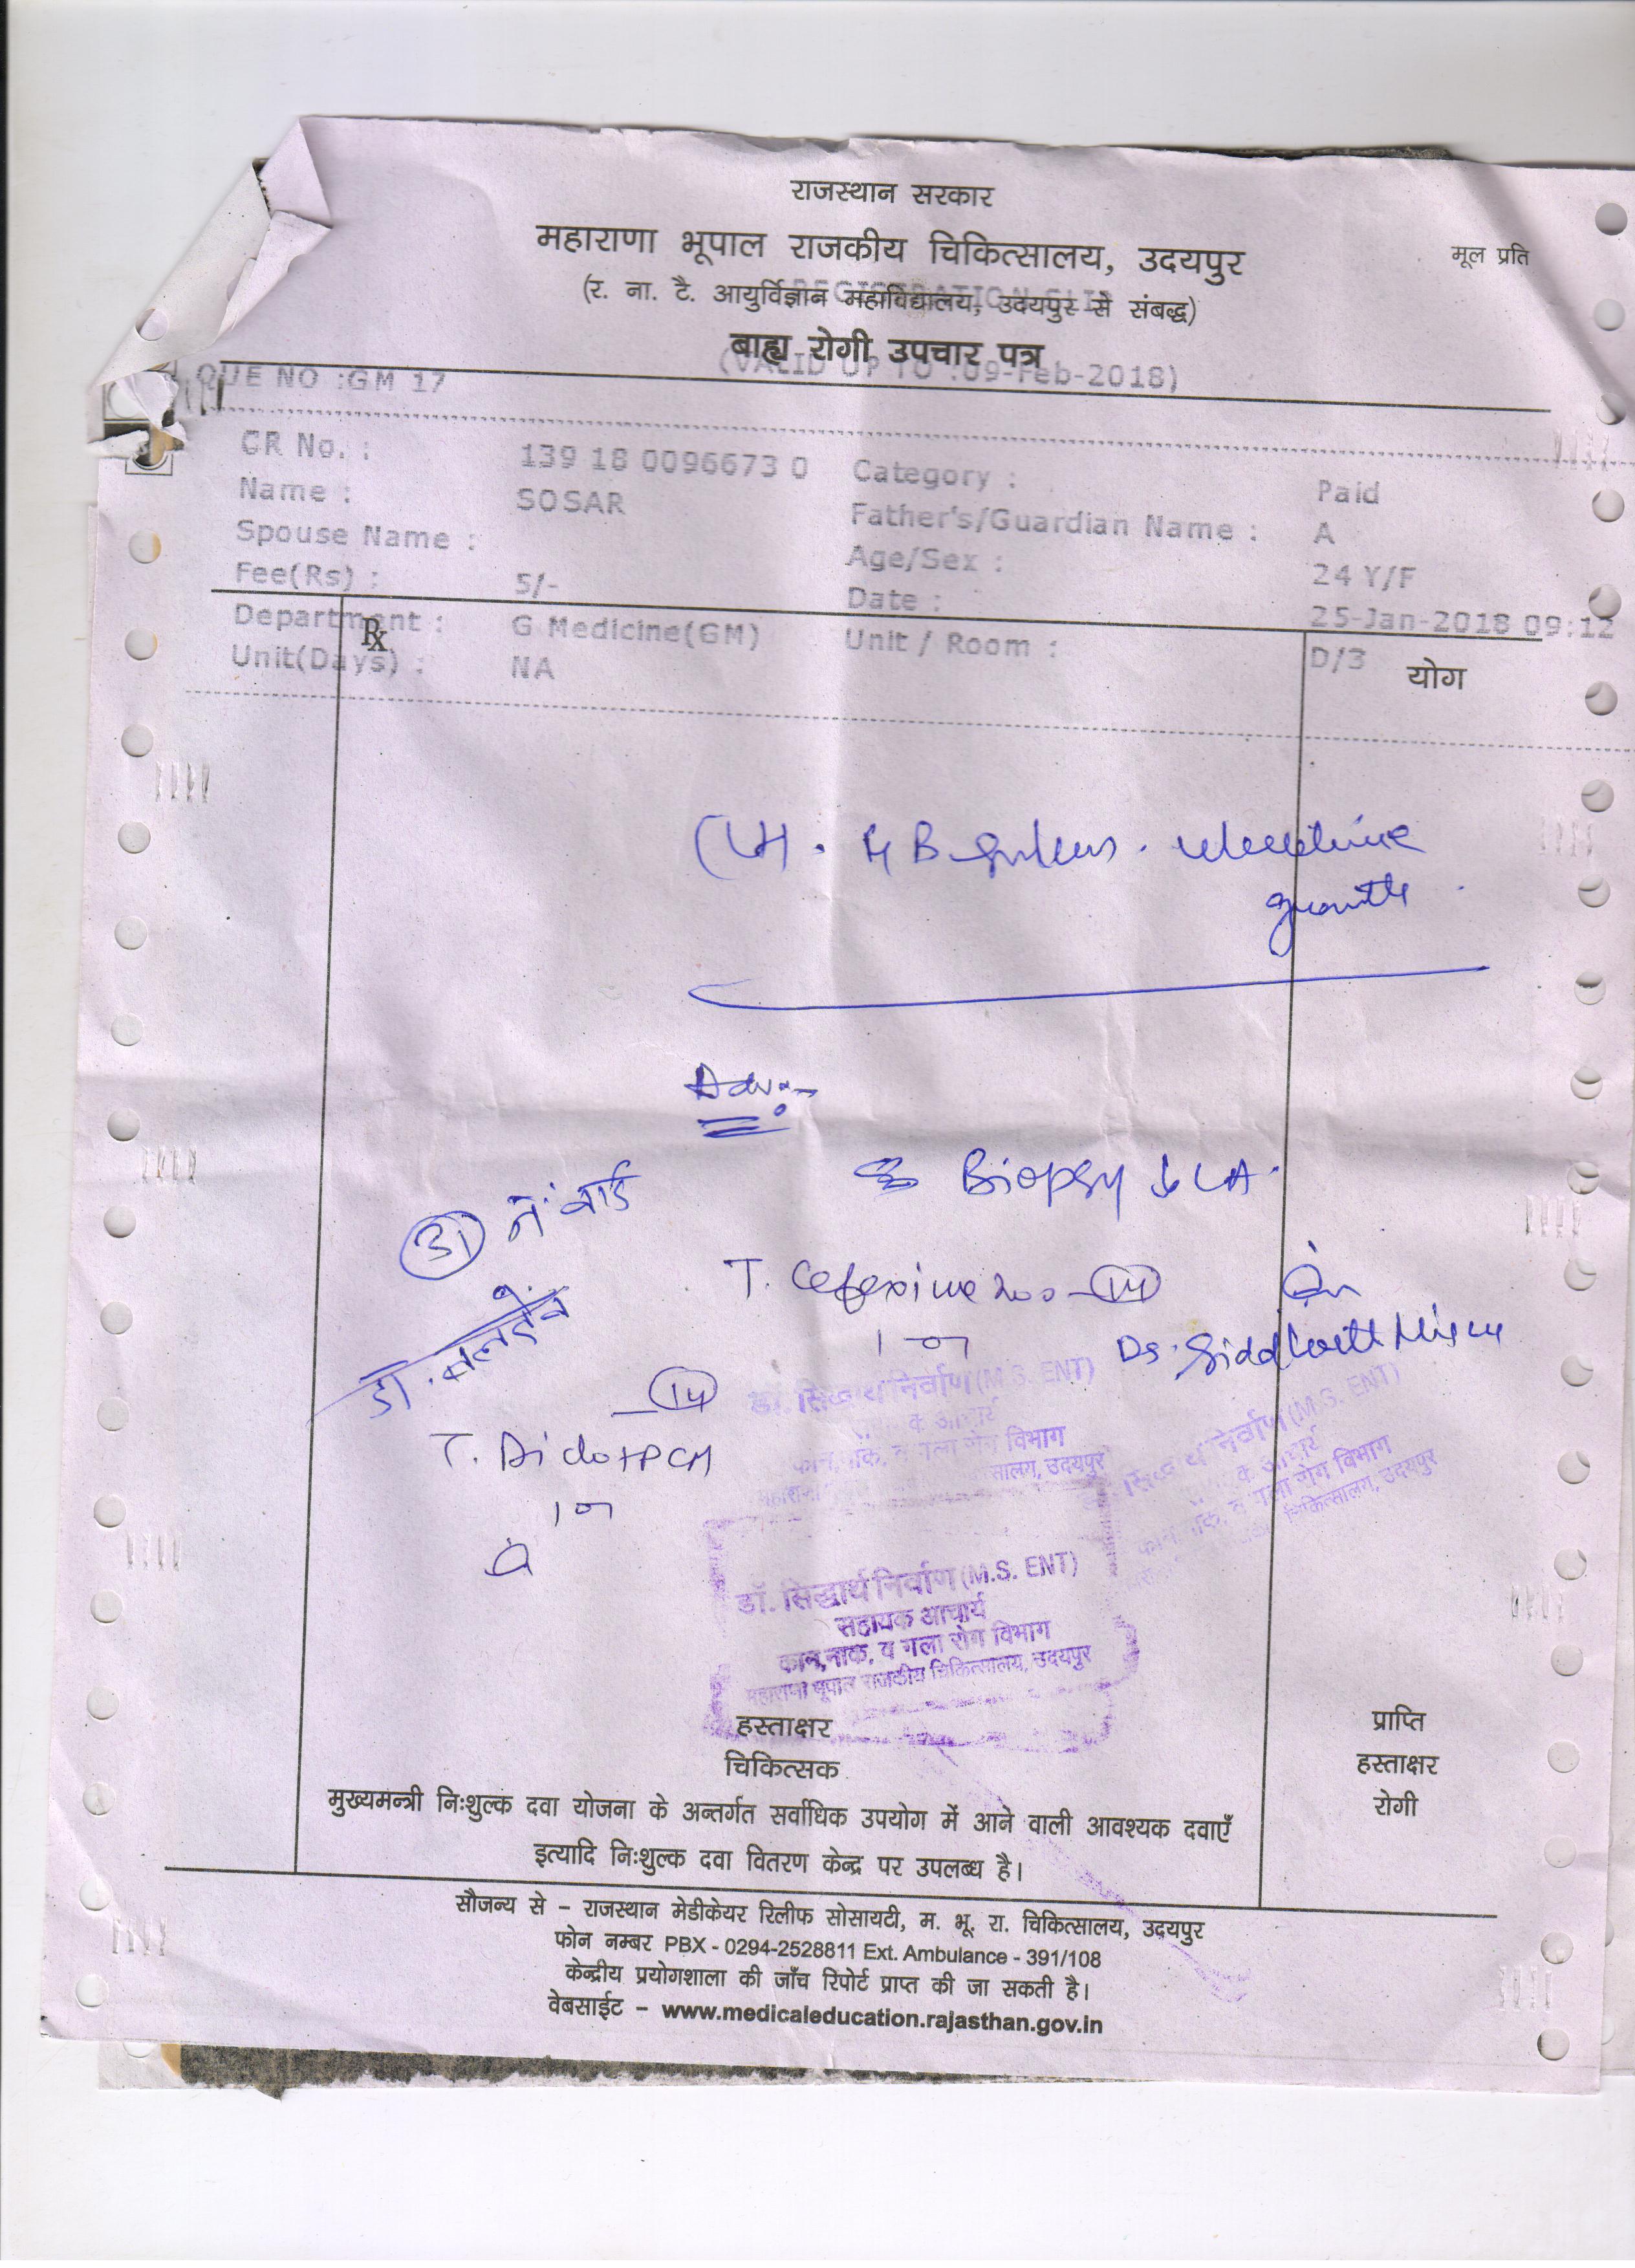 राजस्थान सरकार
महाराणा भूपाल राजकीय चिकित्सालय, उदयपुर
मूल प्रति
(र. ना. टै. आयुर्विज्ञान महाविद्यालय, उदयपुर से संबद्ध)
बाह्य रोगी उपचार पत्र
(VALID UP TO :09-Feb-2018)
QUE NO :GM 17
CR No. : 139 18 0096673 0 Category : Paid
Name : SOSAR Father's/Guardian Name : A
Spouse Name : Age/Sex : 24 Y/F
Fee(Rs) : 5/- Date : 25-Jan-2018 09:12
Department : G Medicine(GM) Unit / Room : D/3
Unit(Days) : NA
Rx
योग
growth
Adv:-
Biopsy LA.
31 नं. वार्ड
T. Cefexime 200 - 14
Dr. Siddharth
डॉ. बलदेव
14
डॉ. सिद्धार्थ निर्वाण (M.S. ENT)
विभाग
उदयपुर
निर्वाण (M.S. ENT)
गला रोग विभाग
चिकित्सालय, उदयपुर
डॉ. सिद्धार्थ निर्वाण (M.S. ENT)
सहायक आचार्य
कान,नाक, व गला रोग विभाग
महाराणा भूपाल राजकीय चिकित्सालय, उदयपुर
हस्ताक्षर
चिकित्सक
प्राप्ति
हस्ताक्षर
रोगी
मुख्यमन्त्री निःशुल्क दवा योजना के अन्तर्गत सर्वाधिक उपयोग में आने वाली आवश्यक दवाएँ
इत्यादि निःशुल्क दवा वितरण केन्द्र पर उपलब्ध है।
सौजन्य से – राजस्थान मेडीकेयर रिलीफ सोसायटी, म. भू. रा. चिकित्सालय, उदयपुर
फोन नम्बर PBX - 0294-2528811 Ext. Ambulance - 391/108
केन्द्रीय प्रयोगशाला की जाँच रिपोर्ट प्राप्त की जा सकती है।
वेबसाईट – www.medicaleducation.rajasthan.gov.in